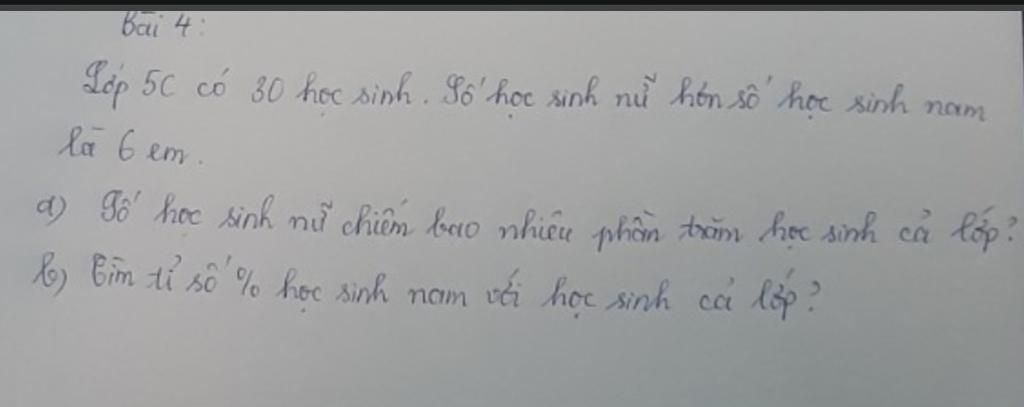 Bài 4:
Lớp 5C có 30 học sinh. Số học sinh nữ hơn số học sinh nam
là 6 em.
a) Số học sinh nữ chiếm bao nhiêu phần trăm học sinh cả lớp?
b) Tìm tỉ số % học sinh nam với học sinh cả lớp?